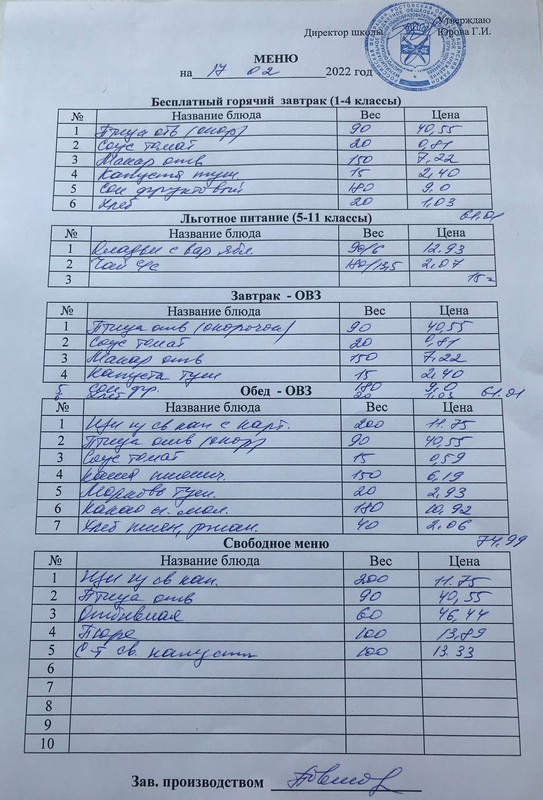 Утверждаю
Директор школы Юрова Г.И.
МЕНЮ
на 17 02 2022 год
Бесплатный горячий завтрак (1-4 классы)
№ Название блюда Вес Цена
1 Птица отв (окор) 90 40,55
2 Соус томат 20 0,81
3 Макар отв 150 7.22
4 Капуста туш 15 2,40
5 Сок фруктовый 180 9.0
6 Хлеб 20 1,03
Льготное питание (5-11 классы) 61.01
№ Название блюда Вес Цена
1 Оладьи с вар ябл. 90/6 12.93
2 Чай с/с 180/13,5 2,07
3 15=
Завтрак - ОВЗ
№ Название блюда Вес Цена
1 Птица отв (окорочок) 90 40,55
2 Соус томат 20 0,81
3 Макар отв 150 7.22
4 Капуста туш 15 2,40
5 Сок фр. 180 9.0
6 Хлеб 20 1.03
Обед - ОВЗ 61.01
№ Название блюда Вес Цена
1 Щи из св кап с карт. 200 11.75
2 Птица отв (окор) 90 40,55
3 Соус томат 15 0,59
4 каша пшенич. 150 6,19
5 Морковь туш. 20 2,93
6 Какао сл. мол. 180 10,92
7 Хлеб пшен, ржан. 40 2.06
Свободное меню 74.99
№ Название блюда Вес Цена
1 Щи из св кап. 200 11.75
2 Птица отв 90 40,55
3 Отбивная 60 46,44
4 Пюре 100 13,89
5 С-т св. капусты 100 13.33
6
7
8
9
10
Зав. производством